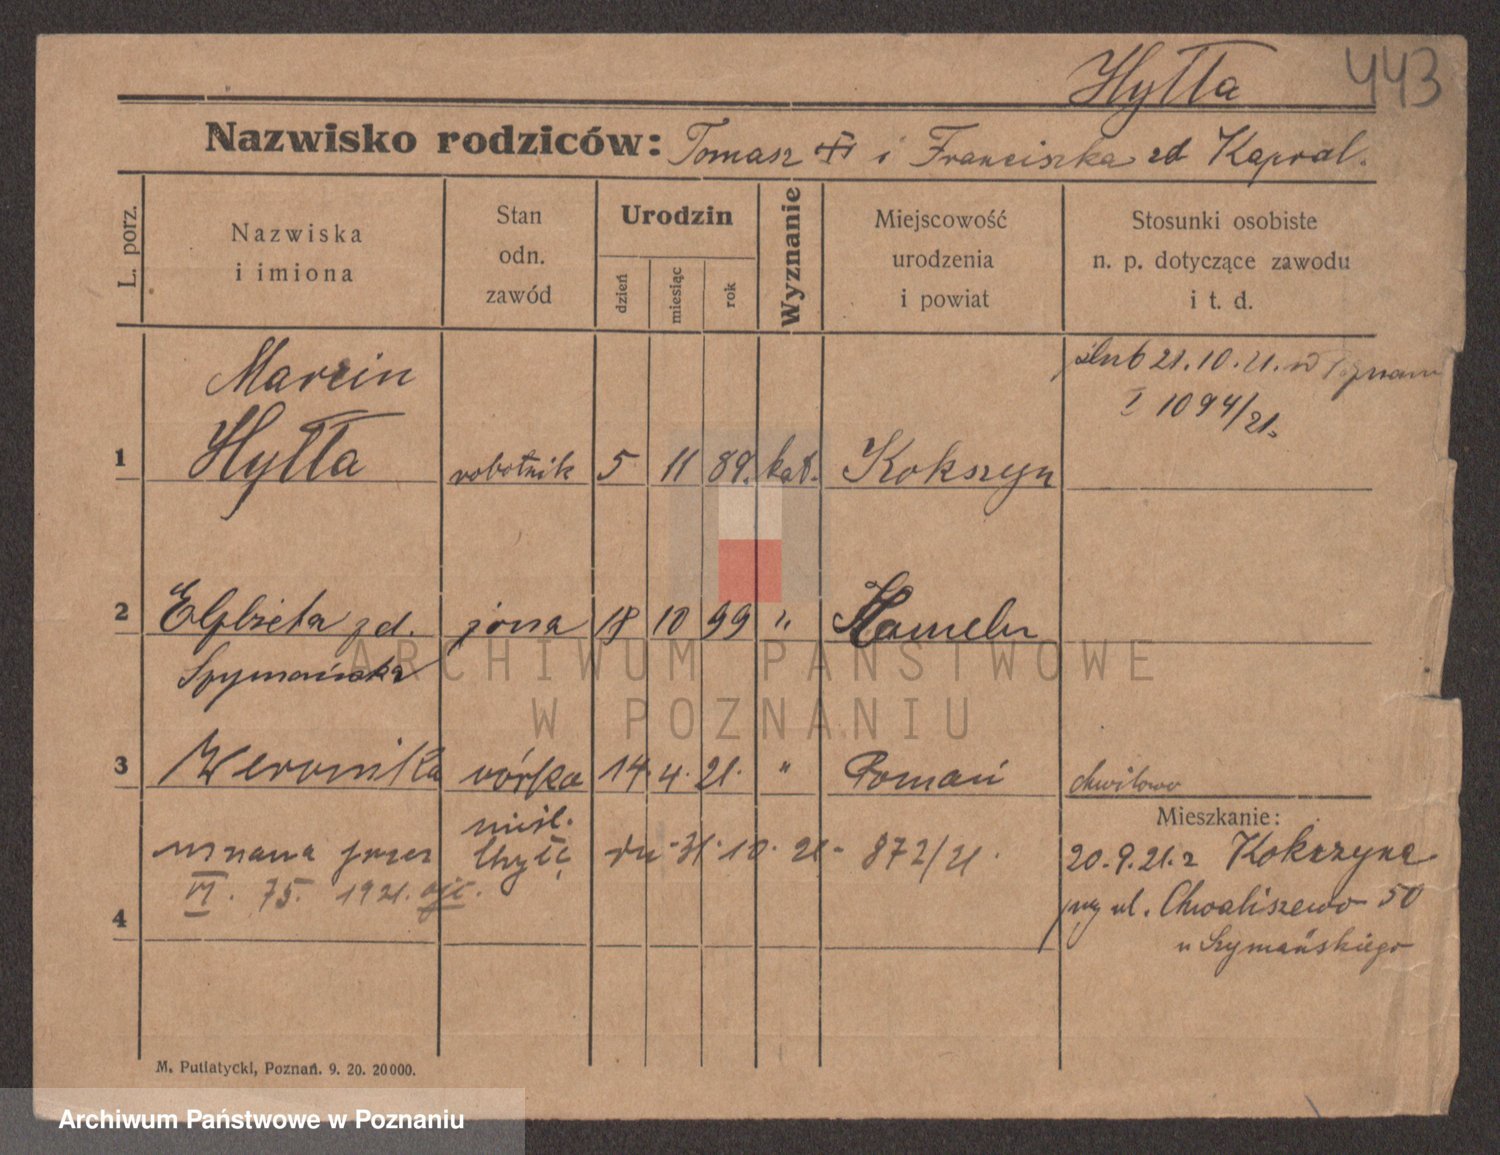 Hyłła 443
Nazwisko rodziców: Tomasz i Franciszka zd Kapral.
L. porz.
Nazwiska
i imiona
Stan
odn.
zawód
Urodzin
dzień
miesiąc
rok
Wyznanie
Miejscowość
urodzenia
i powiat
Stosunki osobiste
n. p. dotyczące zawodu
i t. d.
Marcin
ślub 21.10.21. w
I 1094/21.
1 Hyłła robotnik 5 11 89. kat. Kokszyn
2 Elżbieta zd. żona 18 10 99 " Hameln
3 Weronika córka 14. 4. 21. " Poznań chwilowo
Mieszkanie:
uznana przez
VI. 75. 1921.
dn. 31. 10. 21. 872/21.
20.9.21. z Kokszyna
przy ul. Chwaliszewo 50
u Szymańskiego
4
M. Putiatycki, Poznań. 9. 20. 20000.
ARCHIWUM PAŃSTWOWE
W POZNANIU
Archiwum Państwowe w Poznaniu